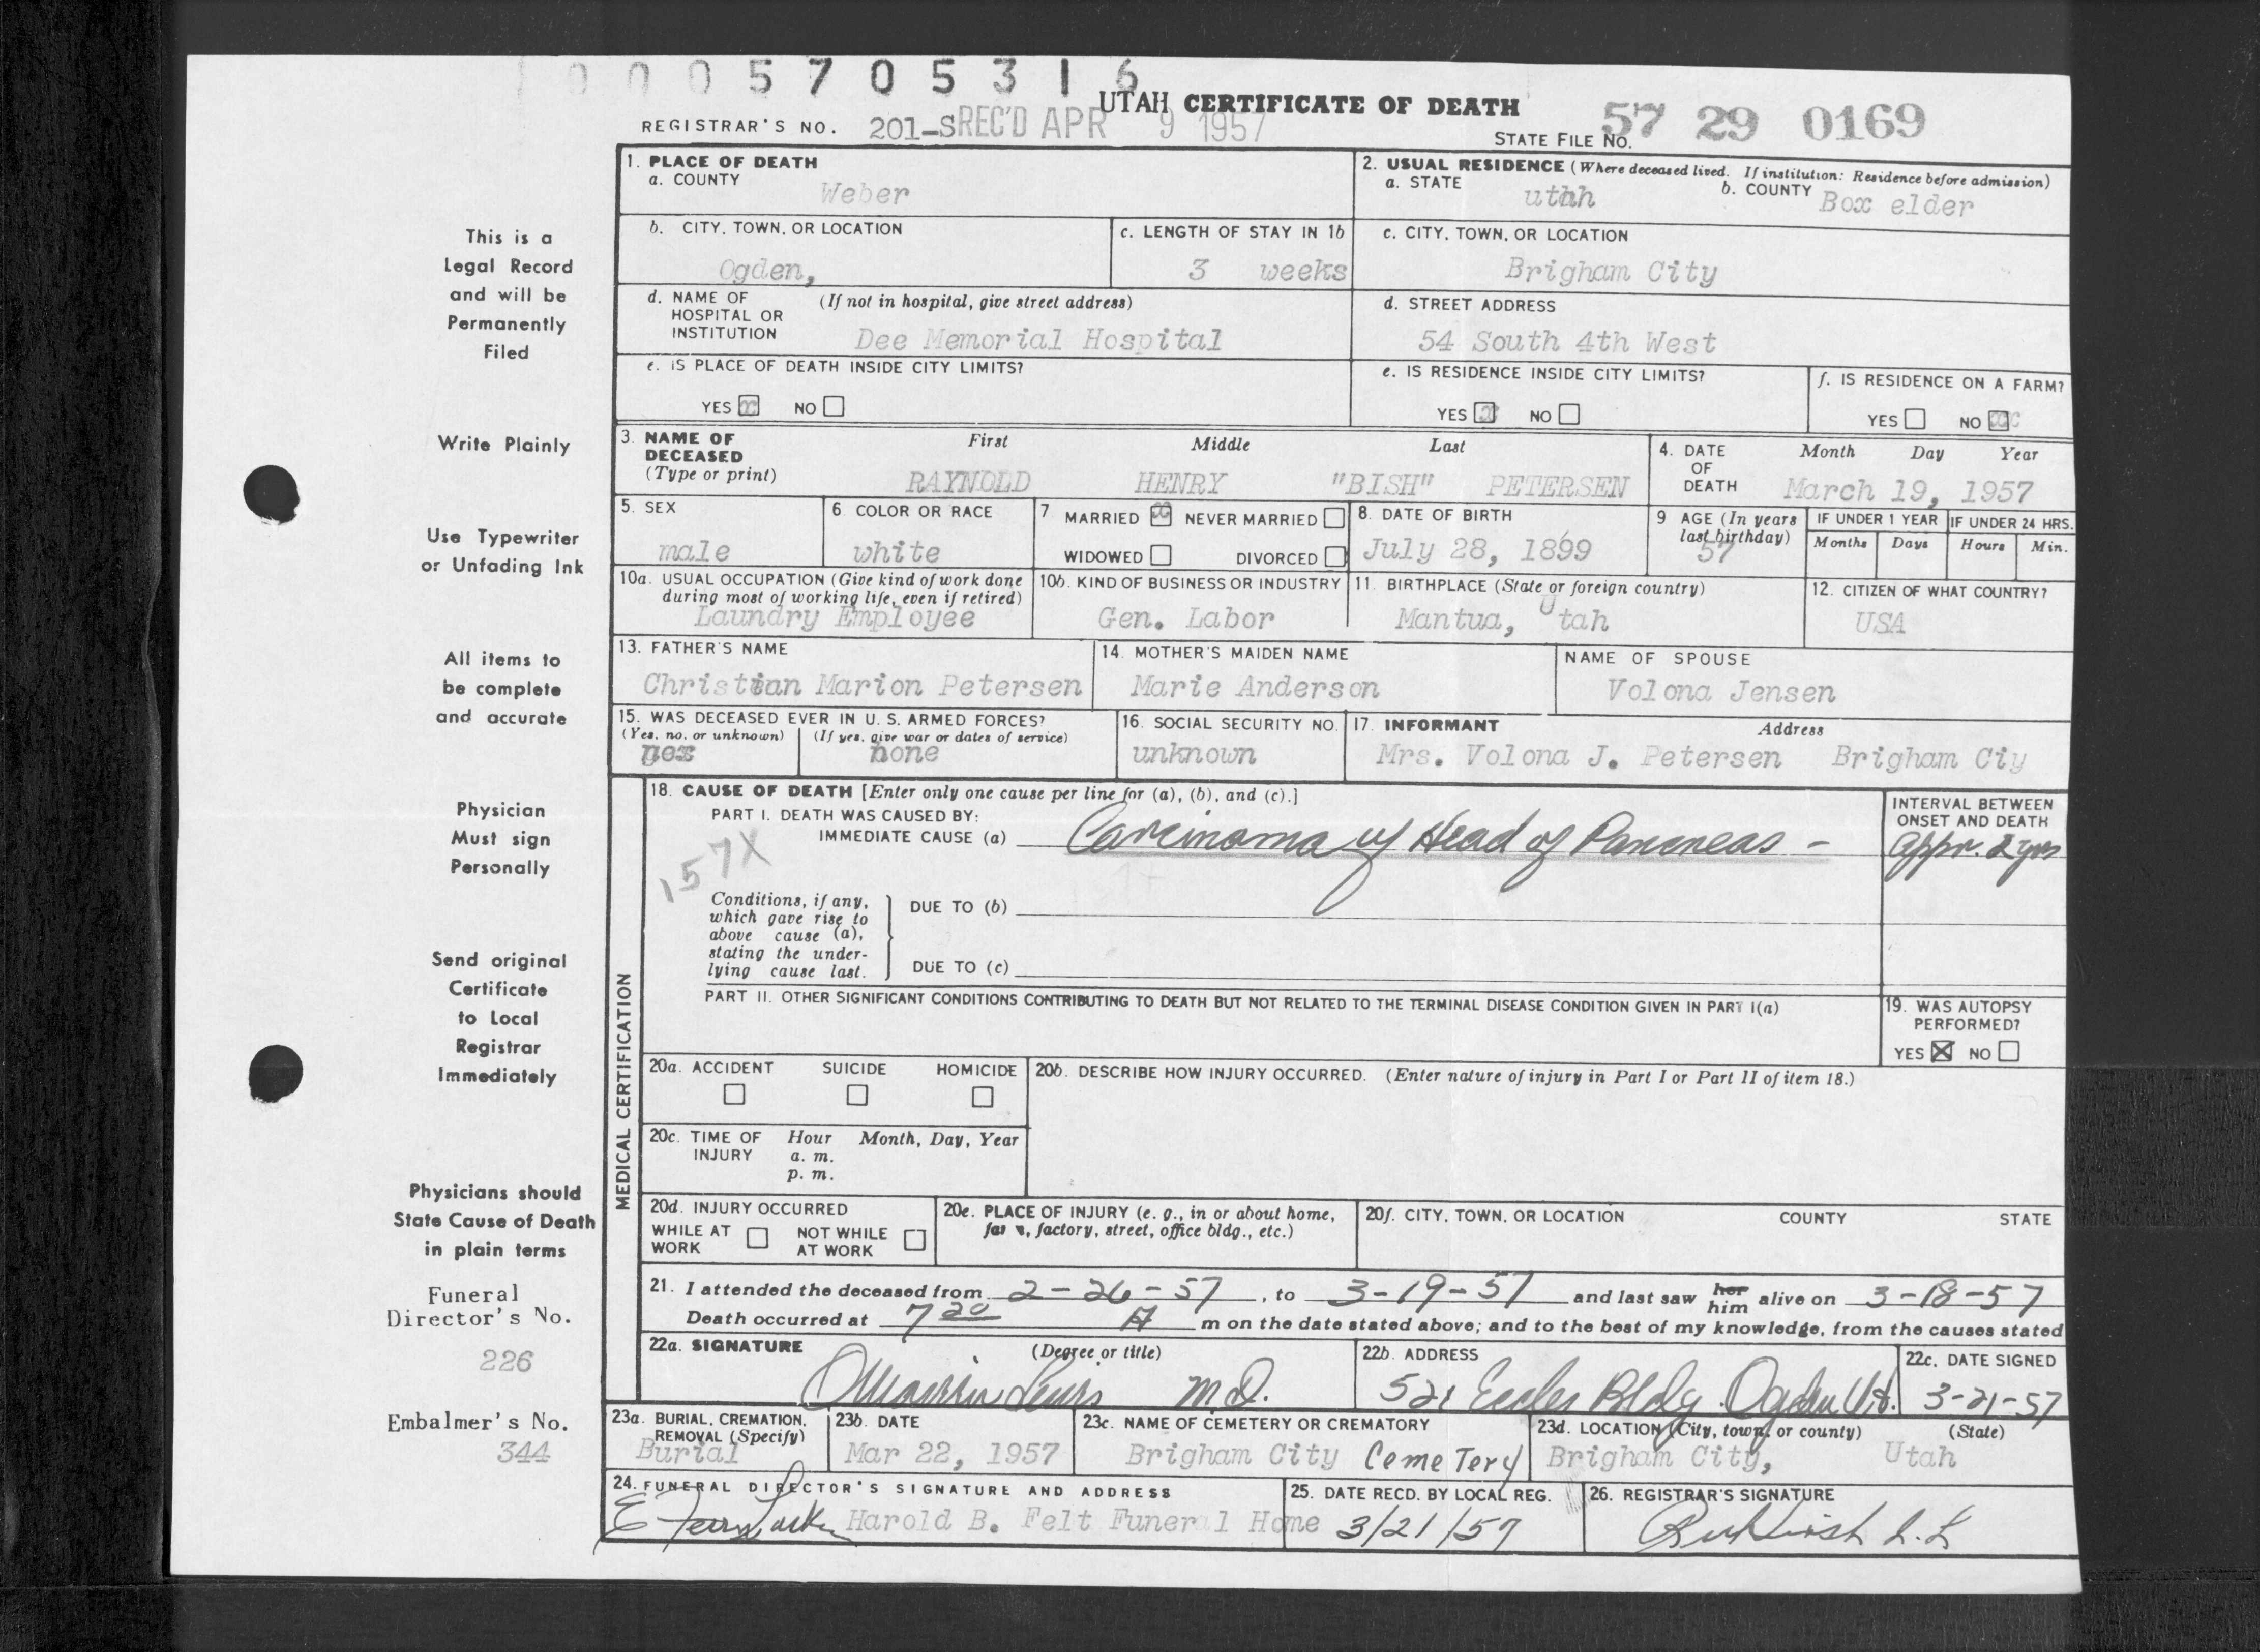 0 0 0 5 7 0 5 3 1 6
UTAH CERTIFICATE OF DEATH
REGISTRAR'S NO. 201-S REC'D APR 9 1957
STATE FILE NO. 57 29 0169
This is a
Legal Record
and will be
Permanently
Filed
Write Plainly
Use Typewriter
or Unfading Ink
All items to
be complete
and accurate
Physician
Must sign
Personally
Send original
Certificate
to Local
Registrar
Immediately
Physicians should
State Cause of Death
in plain terms
Funeral
Director's No.
226
Embalmer's No.
344
1. PLACE OF DEATH
a. COUNTY
Weber
2. USUAL RESIDENCE (Where deceased lived. If institution: Residence before admission)
a. STATE utah b. COUNTY Box elder
b. CITY, TOWN, OR LOCATION
Ogden,
c. LENGTH OF STAY IN 1b
3 weeks
c. CITY, TOWN, OR LOCATION
Brigham City
d. NAME OF HOSPITAL OR INSTITUTION (If not in hospital, give street address)
Dee Memorial Hospital
d. STREET ADDRESS
54 South 4th West
e. IS PLACE OF DEATH INSIDE CITY LIMITS?
YES x NO
e. IS RESIDENCE INSIDE CITY LIMITS?
YES x NO
f. IS RESIDENCE ON A FARM?
YES NO x
3. NAME OF DECEASED (Type or print)
First Middle Last
RAYNOLD HENRY "BISH" PETERSEN
4. DATE OF DEATH Month Day Year
March 19, 1957
5. SEX
male
6 COLOR OR RACE
white
7 MARRIED x NEVER MARRIED
WIDOWED DIVORCED
8. DATE OF BIRTH
July 28, 1899
9 AGE (In years last birthday)
57
IF UNDER 1 YEAR
Months Days
IF UNDER 24 HRS.
Hours Min.
10a. USUAL OCCUPATION (Give kind of work done during most of working life, even if retired)
Laundry Employee
10b. KIND OF BUSINESS OR INDUSTRY
Gen. Labor
11. BIRTHPLACE (State or foreign country)
Mantua, Utah
12. CITIZEN OF WHAT COUNTRY?
USA
13. FATHER'S NAME
Christian Marion Petersen
14. MOTHER'S MAIDEN NAME
Marie Anderson
NAME OF SPOUSE
Volona Jensen
15. WAS DECEASED EVER IN U. S. ARMED FORCES?
(Yes, no, or unknown) (If yes, give war or dates of service)
none
16. SOCIAL SECURITY NO.
unknown
17. INFORMANT Address
Mrs. Volona J. Petersen Brigham Ciy
MEDICAL CERTIFICATION
18. CAUSE OF DEATH [Enter only one cause per line for (a), (b), and (c).]
PART I. DEATH WAS CAUSED BY:
IMMEDIATE CAUSE (a) Carcinoma of Head of Pancreas -
157X
INTERVAL BETWEEN ONSET AND DEATH
appr. 2 yrs
Conditions, if any, which gave rise to above cause (a), stating the underlying cause last.
DUE TO (b)
DUE TO (c)
PART II. OTHER SIGNIFICANT CONDITIONS CONTRIBUTING TO DEATH BUT NOT RELATED TO THE TERMINAL DISEASE CONDITION GIVEN IN PART I(a)
19. WAS AUTOPSY PERFORMED?
YES X NO
20a. ACCIDENT SUICIDE HOMICIDE
20b. DESCRIBE HOW INJURY OCCURRED. (Enter nature of injury in Part I or Part II of item 18.)
20c. TIME OF INJURY Hour Month, Day, Year
a. m.
p. m.
20d. INJURY OCCURRED
WHILE AT WORK NOT WHILE AT WORK
20e. PLACE OF INJURY (e. g., in or about home, farm, factory, street, office bldg., etc.)
20f. CITY, TOWN, OR LOCATION COUNTY STATE
21. I attended the deceased from 2-26-57, to 3-19-57 and last saw her him alive on 3-18-57
Death occurred at 7 20 A m on the date stated above; and to the best of my knowledge, from the causes stated
22a. SIGNATURE (Degree or title)
M.D.
22b. ADDRESS
521 Eccles Bldg. Ogden Ut.
22c. DATE SIGNED
3-21-57
23a. BURIAL, CREMATION, REMOVAL (Specify)
Burial
23b. DATE
Mar 22, 1957
23c. NAME OF CEMETERY OR CREMATORY
Brigham City CemeTery
23d. LOCATION (City, town, or county) (State)
Brigham City, Utah
24. FUNERAL DIRECTOR'S SIGNATURE AND ADDRESS
Harold B. Felt Funeral Home
25. DATE RECD. BY LOCAL REG.
3/21/57
26. REGISTRAR'S SIGNATURE